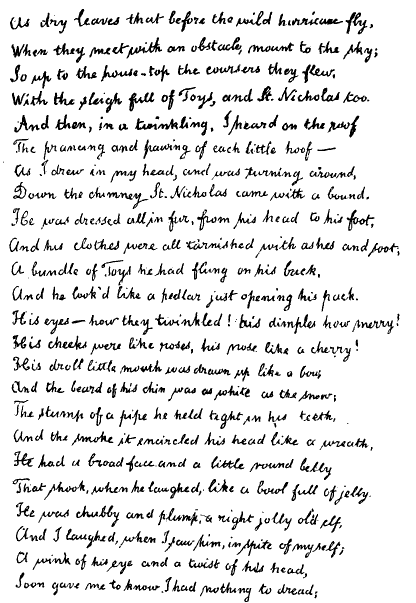 As dry leaves that before the wild hurricane fly,
When they meet with an obstacle, mount to the sky;
So up to the house-top the coursers they flew,
With the sleigh full of Toys, and St. Nicholas too.
And then, in a twinkling, I heard on the roof
The prancing and pawing of each little hoof —
As I drew in my head, and was turning around,
Down the chimney St. Nicholas came with a bound.
He was dressed all in fur, from his head to his foot,
And his clothes were all tarnished with ashes and soot;
A bundle of Toys he had flung on his back,
And he look'd like a pedlar just opening his pack.
His eyes — how they twinkled! his dimples how merry!
His cheeks were like roses, his nose like a cherry!
His droll little mouth was drawn up like a bow,
And the beard of his chin was as white as the snow;
The stump of a pipe he held tight in his teeth,
And the smoke it encircled his head like a wreath,
He had a broad face and a little round belly
That shook, when he laughed, like a bowl full of jelly.
He was chubby and plump, a right jolly old elf,
And I laughed, when I saw him, in spite of myself;
A wink of his eye and a twist of his head,
Soon gave me to know I had nothing to dread;